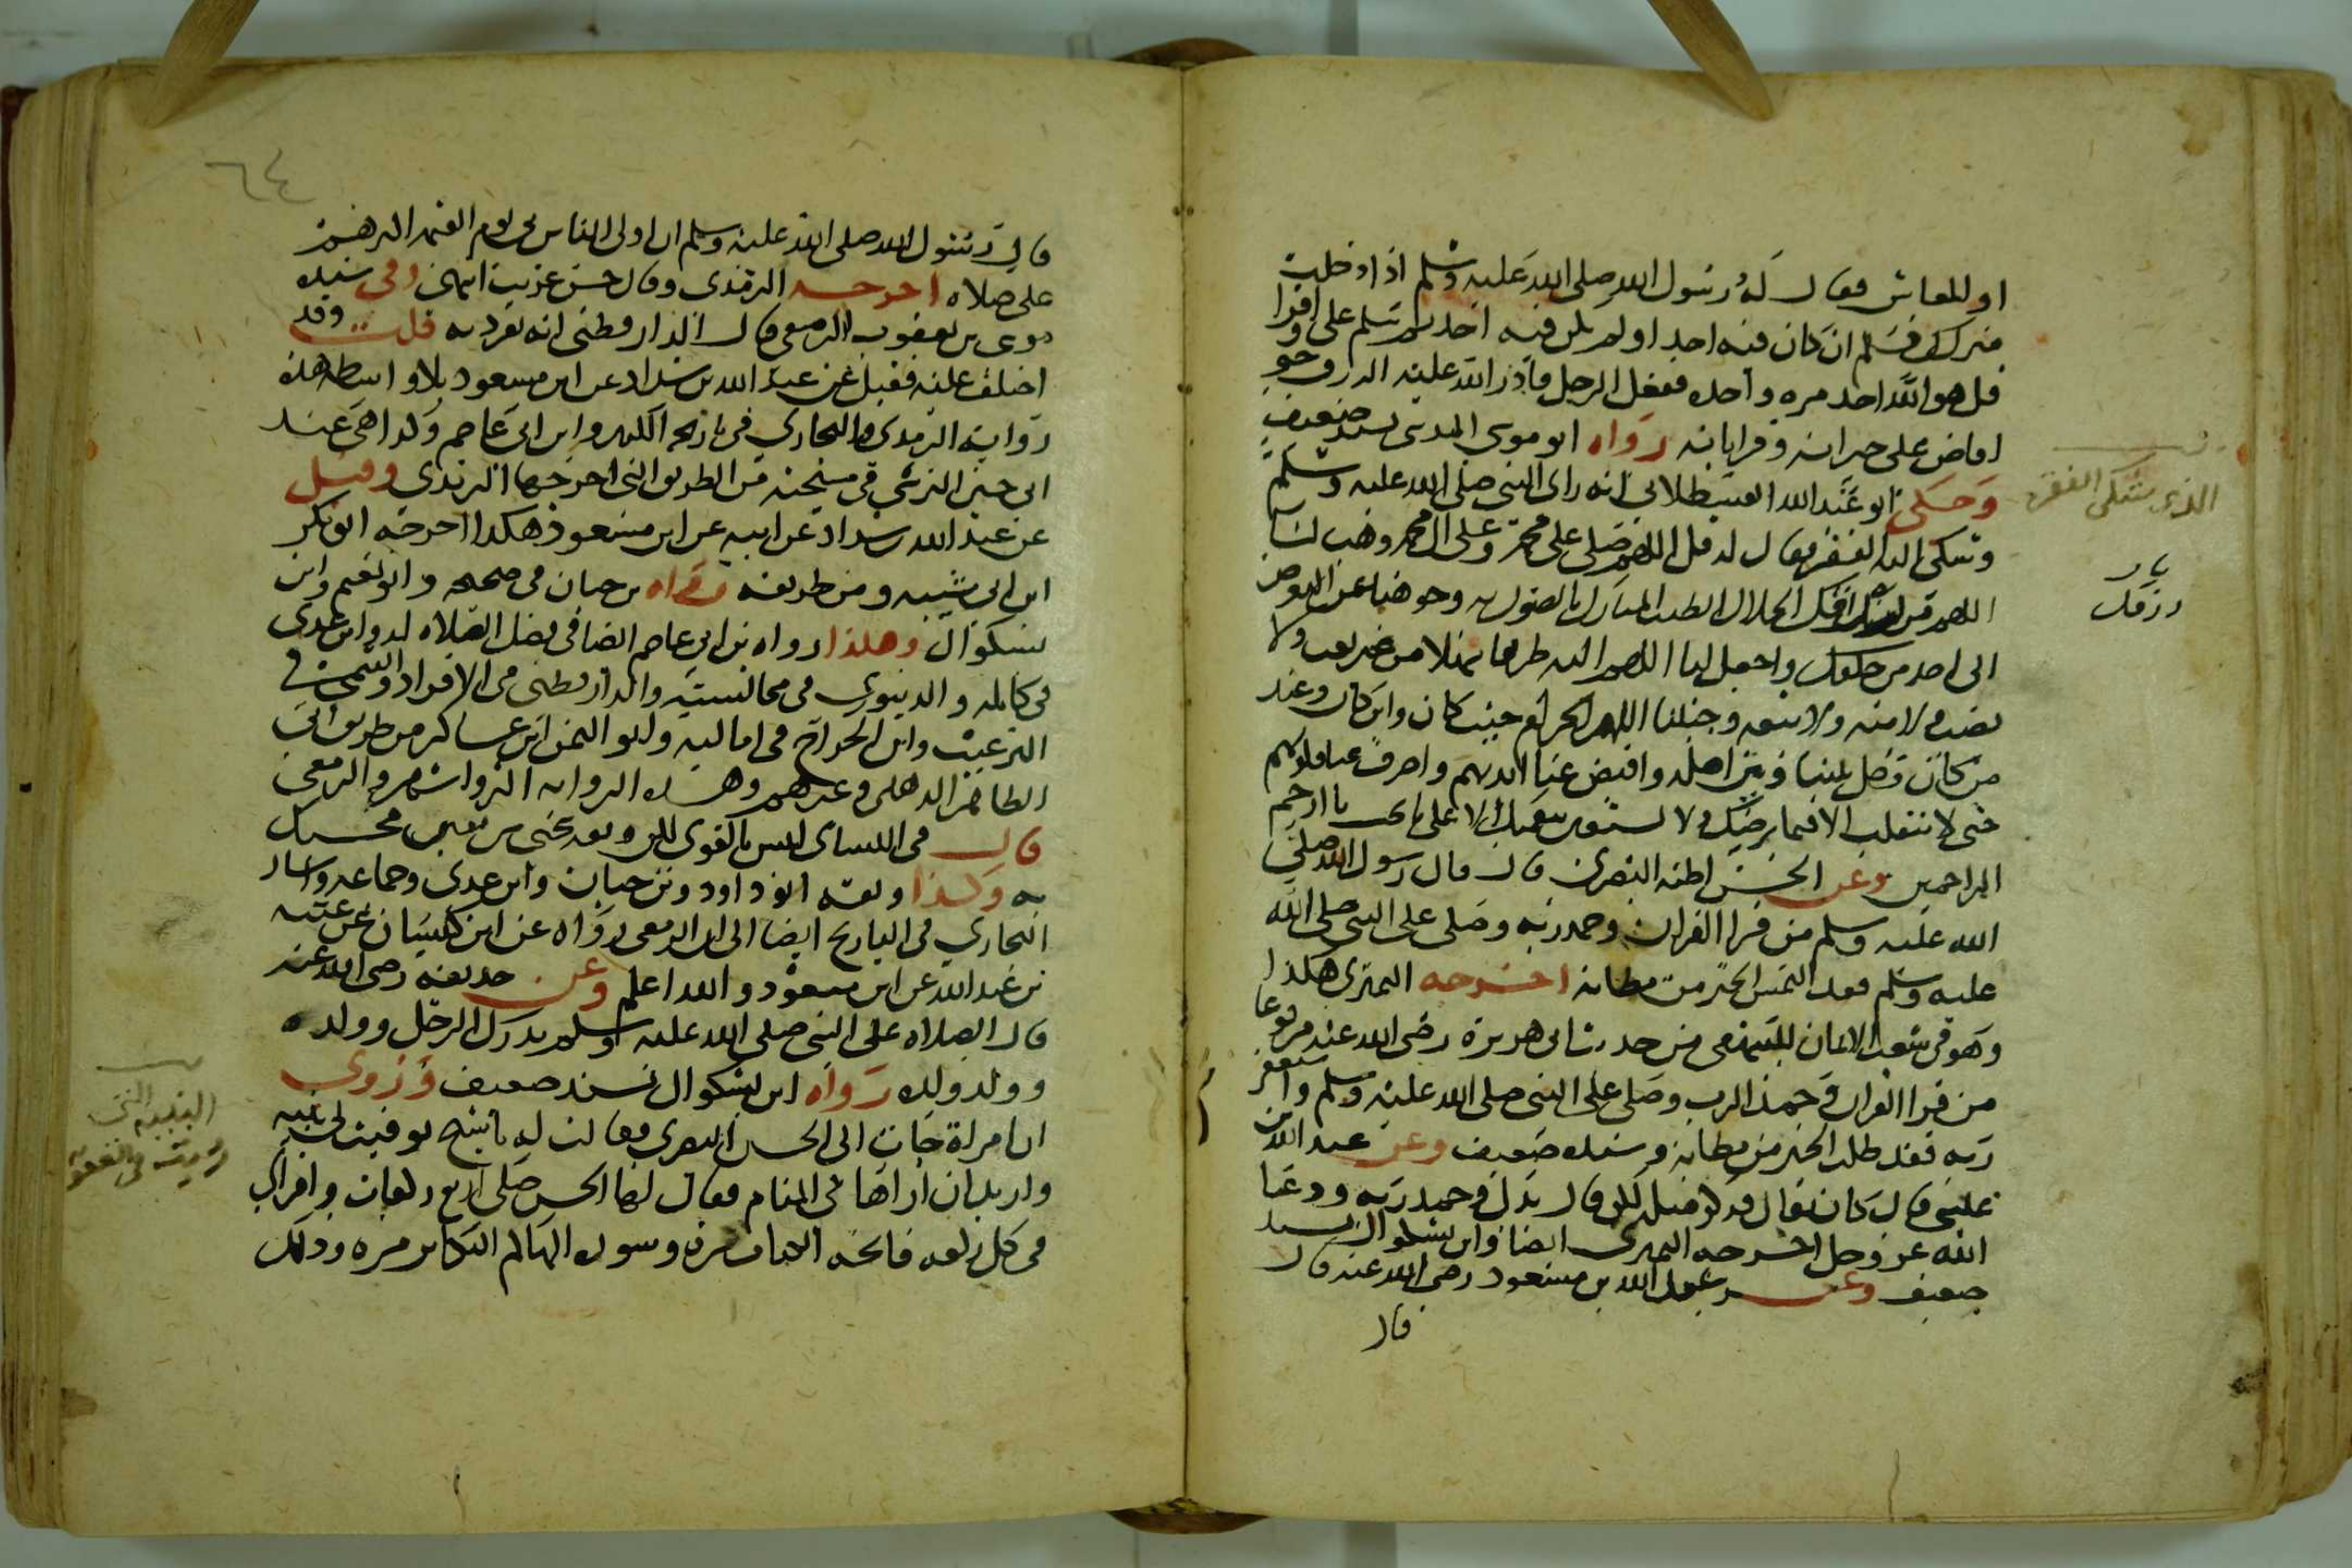 او المعاش فقال له رسول الله صلى الله عليه وسلم اذا دخلت
منزلك فسلم ان كان فيه احد او لم يكن فيه احد ثم سلم على واقرا
قل هو الله احد مره واحده ففعل الرجل فادر الله عليه الرزق حتى
افاض على جيرانه وقراباته رواه ابو موسى المديني بسند ضعيف
وحكى ابو عبد الله القسطلاني انه راى النبي صلى الله عليه وسلم
وشكى اليه الفقر فقال له قل اللهم صل على محمد وعلى ال محمد وهب لنا
اللهم من رزقك الحلال الطيب المبارك ما تصون به وجوهنا عن التعرض
الى احد من خلقك واجعل لنا اللهم اليه طريقا سهلا من غير تعب ولا
نصب ولا منه ولا تبعه وجنبنا اللهم الحرام حيث كان واين كان وعند
من كان وحل بيننا وبين اهله واقبض عنا ايديهم واصرف عنا قلوبهم
حتى لا نتقلب الا فيما يرضيك ولا نستعين بنعمتك الا على ما تحب يا ارحم
الراحمين وعن الحسن اظنه البصري قال قال رسول الله صلى
الله عليه وسلم من قرا القران وحمد ربه وصلى على النبي صلى الله
عليه وسلم فقد التمس الخير من مظانه اخرجه النميري هكذا
وهو في شعب الايمان للبيهقي من حديث ابي هريرة رضي الله عنه مرفوعا
من قرا القران وحمد الرب وصلى على النبي صلى الله عليه وسلم واستغفر
ربه فقد طلب الخير من مظانه وسنده ضعيف وعن عبد الله بن
عيسى قال كان يقال
الله عز وجل اخرجه النميري ايضا وابن بشكوال بسند
ضعيف وعن عبد الله بن مسعود رضي الله عنه قال
قال
الذي يشتكي الفقر
رزقك
٦٤
قال رسول الله صلى الله عليه وسلم ان اولى الناس بي يوم القيمه اكثرهم
على صلاه اخرجه الترمذي وقال حسن غريب انتهى وفي سنده
موسى بن يعقوب الزمعي قال الدارقطني انه تفرد به قلت وقد
اختلف عليه فقيل عن عبد الله بن شداد عن ابن مسعود بلا واسطه هذه
رواية الترمذي والبخاري في تاريخه الكبير وابن ابي عاصم وكذا هي عند
ابي الحسين النرسي في مشيخته من الطريق التي اخرجها الترمذي وقيل
عن عبد الله بن شداد عن ابيه عن ابن مسعود هكذا اخرجه ابو بكر
ابن ابي شيبه ومن طريقه رواه بن حبان في صحيحه وابو نعيم وابن
بشكوال وهكذا رواه بن ابي عاصم ايضا في فضل الصلاه له وابن عدي
في كامله والدينوري في مجالسته والدارقطني في الافراد والتيمي في
الترغيب وابن الجراح في اماليه وابو اليمن ابن عساكر من طريق ابي
الطاهر الذهلي وغيرهم وهذه الروايه اكثر واشهر والزمعي
قال فيه النساي ليس بالقوي لكن وثقه يحيى بن معين فحسبك
به وكذا وثقه ابو داود وبن حبان وابن عدي وجماعه واشار
البخاري في التاريخ ايضا الى ان الزمعي رواه عن ابن كيسان عن عتبه
بن عبد الله عن ابن مسعود والله اعلم وعن حذيفه رضي الله عنه
قال الصلاه على النبي صلى الله عليه وسلم تدرك الرجل وولده
وولد ولده رواه ابن بشكوال بسند ضعيف وروي
ان امراة جات الى الحسن البصري فقالت له يا شيخ توفيت لي بنيه
واريد ان اراها في المنام فقال لها الحسن صلي اربع ركعات واقراي
في كل ركعه فاتحه الكتاب مره وسوره الهاكم التكاثر مره وذلك